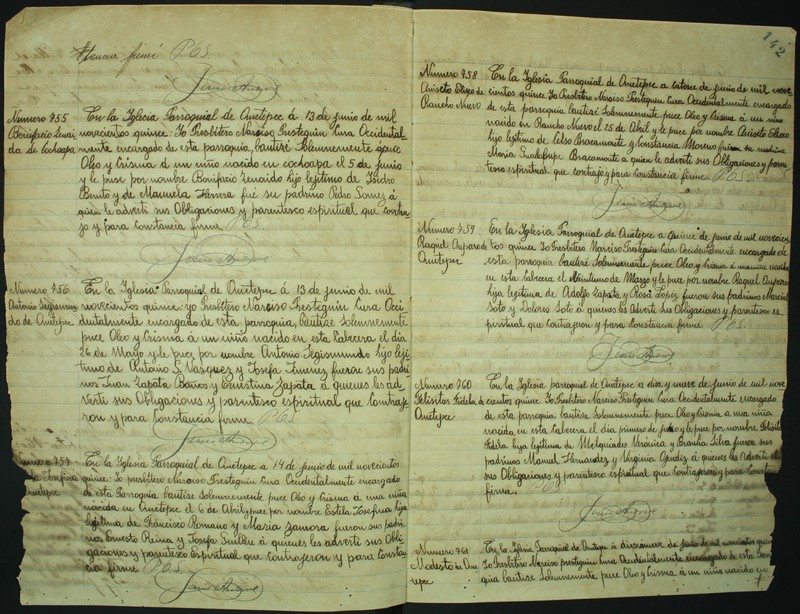 firmé P65
Numero 755
Bonifacio Zenai
da de Cochoapa
En la Iglecia Parroquial de Ometepec á 13 de junio de mil
novecientos quince. Yo Presbitero Narciso Presteguin Cura Occidental
mente encargado de esta parroquia, bautizé Solennemente puce
Oleo y Crisma á un niño nacido en cochoapa el 5 de junio
y le puse por nombre Bonifacio Zenaido hijo legitimo de Isidro
Benito y de Manuela Herrera fué su padrino Pedro Gomez á
quien le adverti sus Obligaciones y parentesco espiritual que contra
jo y para constancia firme P65.
Numero 756
Antonio Segismun
do de Ometepec
En la Iglesia Parroquial de Ometepec á 13 de junio de mil
novecientos quince: yo Presbitero Narciso Presteguin Cura Occi
dentalmente encargado de esta parroquia, bautize Solennemente
puce Oleo y Crisma á un niño nacido en esta Cabecera el dia
26 de Mayo y le puce por nombre Antonio Segismundo hijo legi
timo de Antonio L. Vazquez y Josefa Jimenez fueron sus padri
nos Juan Zapata Baños y Ernestina Zapata á quienes les ad
verti sus Obligaciones y parentesco espiritual que Contraje
ron y para Constancia firme P65
757
Josefina
Ometepec
En la Iglesia Parroquial de Ometepec a 14 de junio de mil novecientos
quince: Yo presbitero Narciso Presteguin Cura Occidentalmente encargado
de esta Parroquia bautise Solennemente puce Oleo y Crisma á una niña
nacida en Ometepec el 6 de Abril y puce por nombre Estela Josefina hija
legitima de Francisco Romano y Maria Zamora fueron sus padri
nos Ernesto Reina y Josefa Guillen á quienes les adverti sus Obli
gaciones y parentesco Espiritual que contrajeron y para Constan
cia firme P65
142
Numero 758
Aniseto Eligio de
Rancho Nuevo
En la Iglesia Parroquial de Ometepec a catorce de junio de mil nove
cientos quince Yo Presbitero Narciso Presteguin Cura Occidentalmente encargado
de esta parroquia bautizé Solennemente puce Oleo y Crisma á un niño
nacido en Rancho Nuevo el 25 de Abril y le puce por nombre Aniseto Eliseo
hijo legitimo de Celso Bracamonte y Constancia Moreno su madrina
Maria Guadalupe Bracamonte a quien le adverti sus Obligaciones y paren
tesco espiritual que contrajo y para constancia firme P65
Numero 759
Raquel Amparo de
Ometepec
En la Iglesia Parroquial de Ometepec a quince de junio de mil novecien
tos quince Yo Presbitero Narciso Presteguin Cura Occidentalmente encargado de
esta parroquia bautizé Solennemente puce Oleo y Crisma á una niña nacida
en esta Cabecera el veintiuno de Marzo y le puce por nombre Raquel Amparo
hija legitima de Adolfo Zapata y Rosa Lopez fueron sus padrinos
Soto y Dolores Soto á quienes les Adverti sus Obligaciones y parentesco es
piritual que contrajeron y para constancia firme P65.
Numero 760
Felisitas Fidela de
Ometepec
En la Iglesia parroquial de Ometepec a dies y nueve de junio de mil nove
cientos quince Yo Presbitero Narciso Presteguin Cura Occidentalmente encargado
de esta parroquia bautise Solennemente puce Oleo y Crisma a una niña
nacida en esta Cabecera el dia primero de y le puce por nombre Felisitas
Fidela hija legitima de Melquiades Verónica y Braulia Silva fueron sus
padrinos Manuel Hernandez y Virginia á quienes les Adverti
sus Obligaciones y parentesco espiritual que contrajeron y para Constancia
firme.
Numero 761
Modesto de Ome
tepec
En la Iglesia Parroquial de Ometepec á de junio de mil novecientos quince
Yo Presbitero Narciso presteguin Cura Occidentalmente encargado de esta Parro
quia bautize Solennemente puce Oleo y Crisma á un niño nacido en